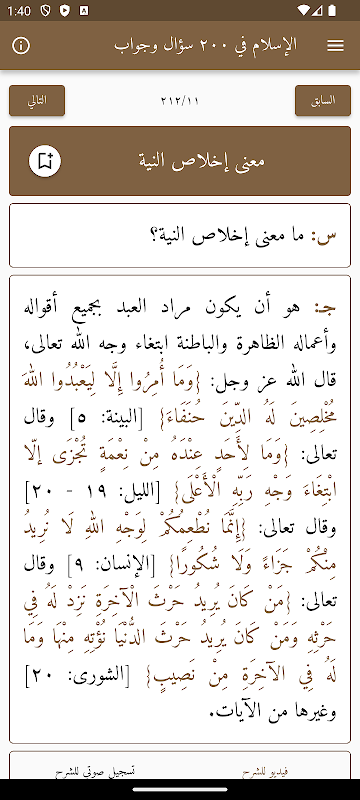 1:40
الإسلام في ٢٠٠ سؤال وجواب
السابق
٢١٢/١١
التالي
معنى إخلاص النية
س: ما معنى إخلاص النية؟
جـ: هو أن يكون مراد العبد بجميع أقواله
وأعماله الظاهرة والباطنة ابتغاء وجه الله تعالى،
قال الله عز وجل: {وَمَا أُمِرُوا إِلَّا لِيَعْبُدُوا اللهَ
مُخْلِصِينَ لَهُ الدِّينَ حُنَفَاءَ} [البينة: ٥] وقال
تعالى: {وَمَا لِأَحَدٍ عِنْدَهُ مِنْ نِعْمَةٍ تُجْزَى إِلَّا
ابْتِغَاءَ وَجْهِ رَبِّهِ الْأَعْلَى} [الليل: ١٩ - ٢٠]
وقال تعالى: {إِنَّمَا نُطْعِمُكُمْ لِوَجْهِ اللهِ لَا نُرِيدُ
مِنْكُمْ جَزَاءً وَلَا شُكُورًا} [الإنسان: ٩] وقال
تعالى: {مَنْ كَانَ يُرِيدُ حَرْثَ الْآخِرَةِ نَزِدْ لَهُ فِي
حَرْثِهِ وَمَنْ كَانَ يُرِيدُ حَرْثَ الدُّنْيَا نُؤْتِهِ مِنْهَا وَمَا
لَهُ فِي الْآخِرَةِ مِنْ نَصِيبٍ} [الشورى: ٢٠]
وغيرها من الآيات.
فيديو للشرح
تسجيل صوتي للشرح